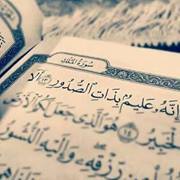 سُورَةُ الْمُلْكِ
إِنَّهُۥ عَلِيمٌۢ بِذَاتِ الصُّدُورِ ١٣ أَلَا
الْخَبِيرُ ١٤ هُوَ الَّذِي جَعَلَ لَكُمُ
رِّزْقِهِۦ وَإِلَيْهِ النُّشُورُ